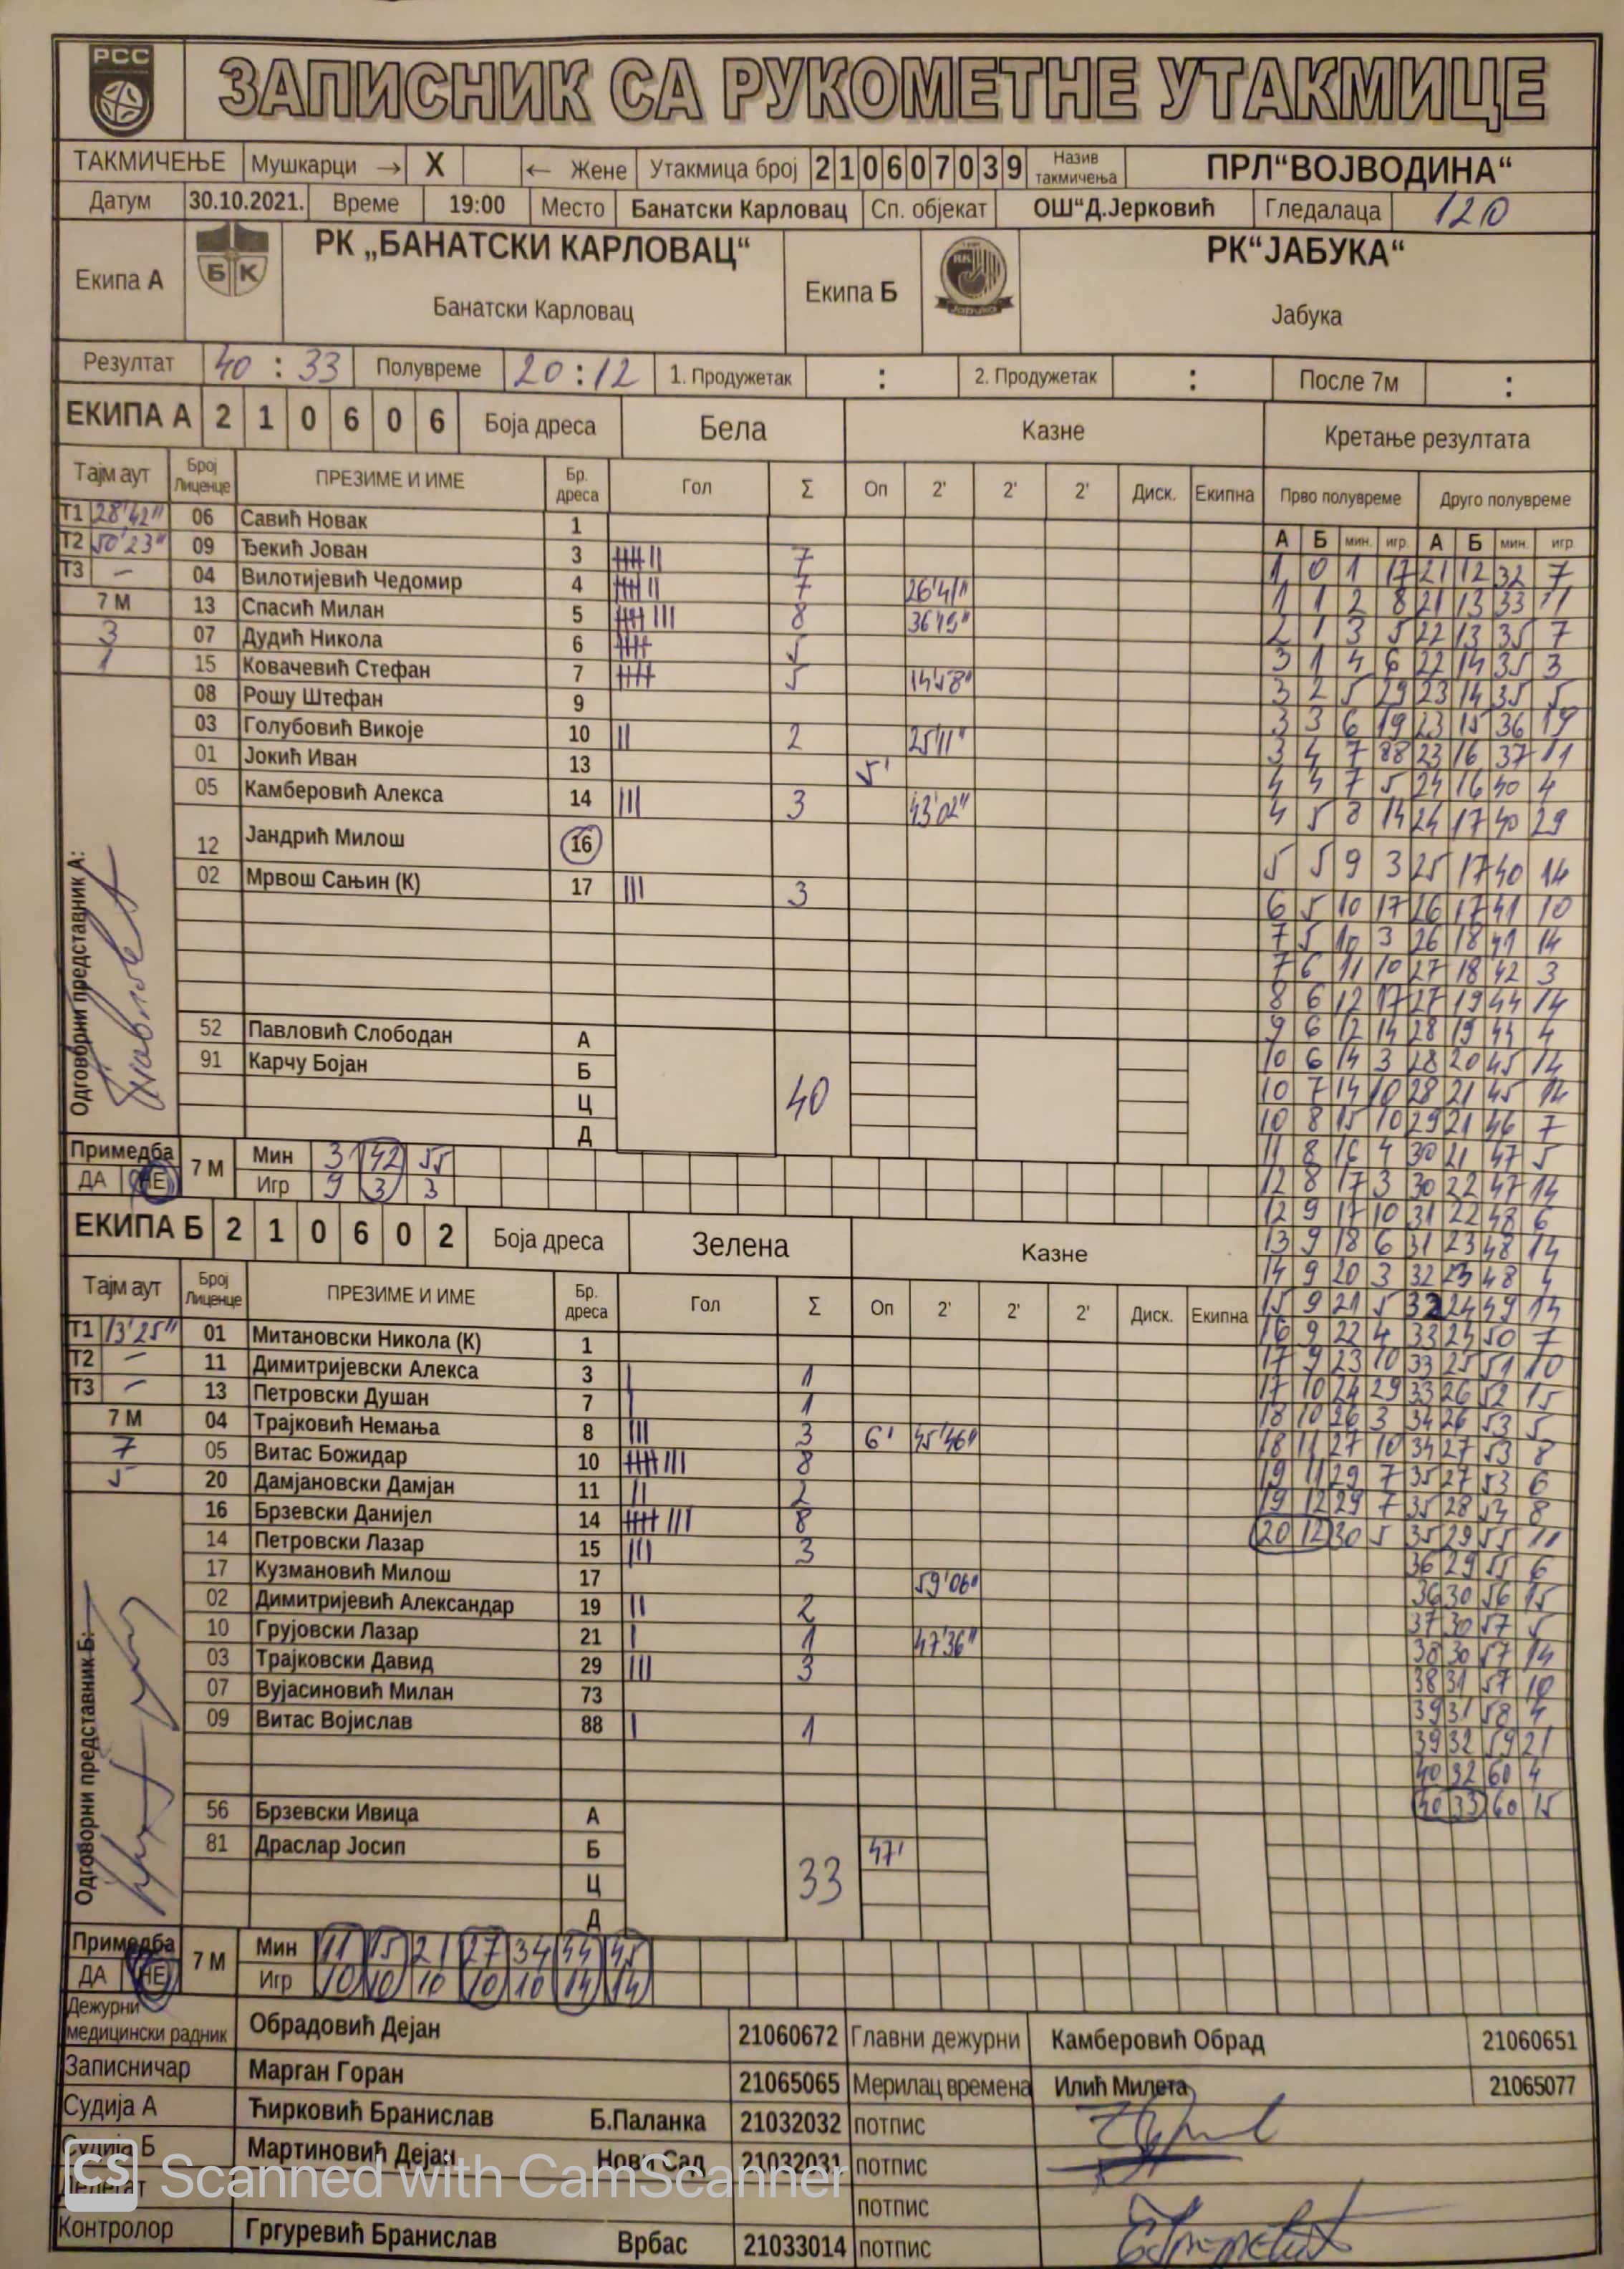 РСС
ЗАПИСНИК СА РУКОМЕТНЕ УТАКМИЦЕ
ТАКМИЧЕЊЕ Мушкарци → X ← Жене Утакмица број 2 1 0 6 0 7 0 3 9 Назив такмичења ПРЛ“ВОЈВОДИНА“
Датум 30.10.2021. Време 19:00 Место Банатски Карловац Сп. објекат ОШ“Д.Јерковић Гледалаца 120
Екипа А РК „БАНАТСКИ КАРЛОВАЦ“ Екипа Б РК“ЈАБУКА“
Банатски Карловац Јабука
Резултат 40 : 33 Полувреме 20 : 12 1. Продужетак : 2. Продужетак : После 7м :
ЕКИПА А 2 1 0 6 0 6 Боја дреса Бела Казне Кретање резултата
Тајм аут Број Лиценце ПРЕЗИМЕ И ИМЕ Бр. дреса Гол Σ Оп 2' 2' 2' Диск. Екипна Прво полувреме Друго полувреме
А Б мин. игр. А Б мин. игр
Т1 28'42" 06 Савић Новак 1
Т2 50'23" 09 Ђекић Јован 3 7
Т3 – 04 Вилотијевић Чедомир 4 7 26'41"
7 М 13 Спасић Милан 5 8 36'49"
3 07 Дудић Никола 6 5
1 15 Ковачевић Стефан 7 5 14'58"
08 Рошу Штефан 9
03 Голубовић Викоје 10 2 25'11"
01 Јокић Иван 13 5'
05 Камберовић Алекса 14 3 43'02"
12 Јандрић Милош 16
02 Мрвош Сањин (К) 17 3
52 Павловић Слободан А
91 Карчу Бојан Б
Ц
Д
40
Одговорни представник А:
1 0 1 17 21 12 32 7
1 1 2 8 21 13 33 11
2 1 3 5 22 13 35 7
3 1 4 6 22 14 35 3
3 2 5 29 23 14 35 5
3 3 6 19 23 15 36 19
3 4 7 88 23 16 37 11
4 4 7 5 24 16 40 4
4 5 8 14 24 17 40 29
5 5 9 3 25 17 40 14
6 5 10 17 26 17 41 10
7 5 10 3 26 18 41 14
7 6 11 10 27 18 42 3
8 6 12 17 27 19 44 14
9 6 12 14 28 19 44 4
10 6 14 3 28 20 45 14
10 7 14 10 28 21 45 14
10 8 15 10 29 21 46 7
11 8 16 4 30 21 47 5
12 8 17 3 30 22 47 14
12 9 17 10 31 22 48 6
13 9 18 6 31 23 48 14
14 9 20 3 32 23 48 4
15 9 21 5 32 24 49 14
16 9 22 4 33 24 50 7
17 9 23 10 33 25 51 10
17 10 24 29 33 26 52 15
18 10 26 3 34 26 53 5
18 11 27 10 34 27 53 8
19 11 29 7 35 27 53 6
19 12 29 7 35 28 54 8
20 12 30 5 35 29 55 11
36 29 55 6
36 30 56 15
37 30 57 5
38 30 57 14
38 31 57 10
39 31 58 4
39 32 59 21
40 32 60 4
40 33 60 15
Примедба ДА НЕ 7 М Мин 31 42 55
Игр 9 3 3
ЕКИПА Б 2 1 0 6 0 2 Боја дреса Зелена Казне
Тајм аут Број Лиценце ПРЕЗИМЕ И ИМЕ Бр. дреса Гол Σ Оп 2' 2' 2' Диск. Екипна
Т1 13'25" 01 Митановски Никола (К) 1
Т2 – 11 Димитријевски Алекса 3 1
Т3 – 13 Петровски Душан 7 1
7 М 04 Трајковић Немања 8 3 6' 45'46"
7 05 Витас Божидар 10 8
5 20 Дамјановски Дамјан 11 2
16 Брзевски Данијел 14 8
14 Петровски Лазар 15 3
17 Кузмановић Милош 17 59'06"
02 Димитријевић Александар 19 2
10 Грујовски Лазар 21 1 47'36"
03 Трајковски Давид 29 3
07 Вујасиновић Милан 73
09 Витас Војислав 88 1
56 Брзевски Ивица А
81 Драслар Јосип Б 47'
Ц
Д
33
Одговорни представник Б:
Примедба ДА НЕ 7 М Мин 11 15 21 27 34 44 45
Игр 10 10 10 10 10 14 14
Дежурни медицински радник Обрадовић Дејан 21060672 Главни дежурни Камберовић Обрад 21060651
Записничар Марган Горан 21065065 Мерилац времена Илић Милета 21065077
Судија А Ћирковић Бранислав Б.Паланка 21032032 потпис
Судија Б Мартиновић Дејан Нови Сад 21032031 потпис
Делегат потпис
Контролор Гргуревић Бранислав Врбас 21033014 потпис
CS Scanned with CamScanner